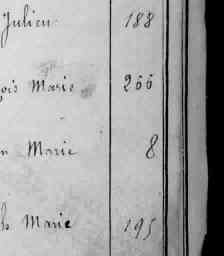 Julien 188
çois Marie 266
n Marie 8
ls Marie 195